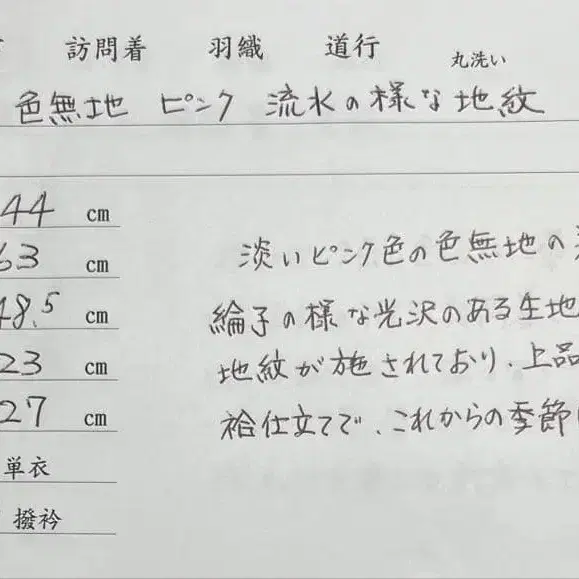 訪問着 羽織 道行 丸洗い
色無地 ピンク 流水の様な地紋
44 cm
63 cm
48.5 cm
23 cm
27 cm
単衣
撥衿
淡いピンク色の色無地の
綸子の様な光沢のある生地
地紋が施されており、上品
袷仕立てで、これからの季節